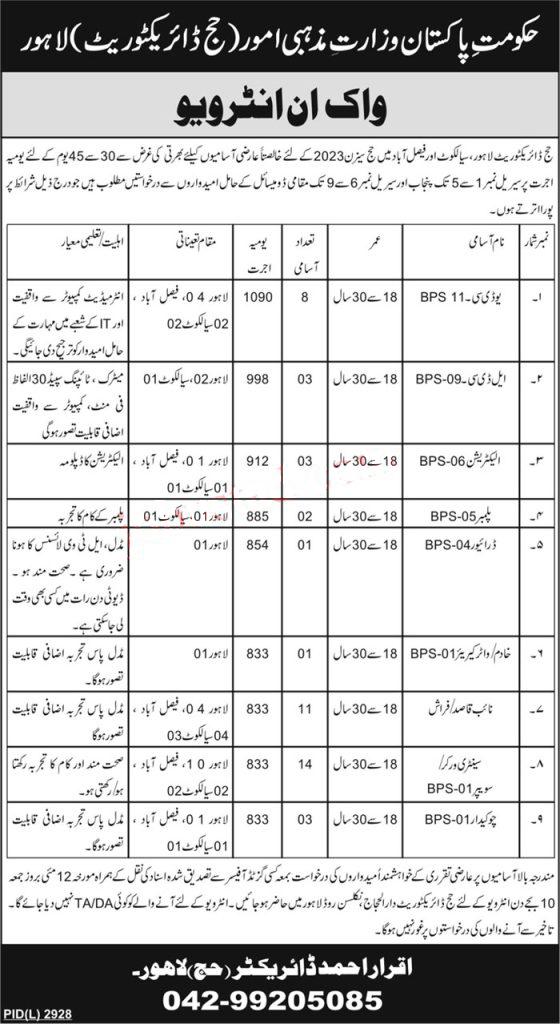 حکومتِ پاکستان وزارتِ مذہبی امور (حج ڈائریکٹوریٹ) لاہور
واک ان انٹرویو
حج ڈائریکٹوریٹ لاہور، سیالکوٹ اور فیصل آباد میں حج سیزن 2023 کے لئے خالصتاً عارضی آسامیوں کیلئے بھرتی کی غرض سے 30 سے 45 یوم کے لئے یومیہ
اجرت پر سیریل نمبر 1 سے 5 تک پنجاب اور سیریل نمبر 6 سے 9 تک مقامی ڈومیسائل کے حامل امیدواروں سے درخواستیں مطلوب ہیں جو درج ذیل شرائط پر
پورا اترتے ہوں۔
نمبر شمار نام آسامی عمر تعداد آسامی یومیہ اجرت مقام تعیناتی اہلیت/تعلیمی معیار
۱۔ یو ڈی سی۔ BPS 11 18 سے 30 سال 8 1090 لاہور 04، فیصل آباد، انٹرمیڈیٹ کمپیوٹر سے واقفیت
02 سیالکوٹ 02 اور IT کے شعبے میں مہارت کے
حامل امیدوار کو ترجیح دی جائیگی۔
۲۔ ایل ڈی سی۔ BPS-09 18 سے 30 سال 03 998 لاہور 02، سیالکوٹ 01 میٹرک، ٹائپنگ سپیڈ 30 الفاظ
فی منٹ، کمپیوٹر سے واقفیت
اضافی قابلیت تصور ہوگی
۳۔ الیکٹریشن BPS-06 18 سے 30 سال 03 912 لاہور 01، فیصل آباد، الیکٹریشن کا ڈپلومہ
01 سیالکوٹ 01
۴۔ پلمبر BPS-05 18 سے 30 سال 02 885 لاہور 01، سیالکوٹ 01 پلمبر کے کام کا تجربہ
۵۔ ڈرائیور BPS-04 18 سے 30 سال 01 854 لاہور 01 مڈل، ایل ٹی وی لائسنس کا ہونا
ضروری ہے۔ صحت مند ہو۔
ڈیوٹی دن رات میں کسی بھی وقت
لی جاسکتی ہے۔
۶۔ خادم/واٹر کیریئر BPS-01 18 سے 30 سال 01 833 لاہور 01 مڈل پاس تجربہ اضافی قابلیت
تصور ہوگا۔
۷۔ نائب قاصد/فراش 18 سے 30 سال 11 833 لاہور 04، فیصل آباد، مڈل پاس تجربہ اضافی قابلیت
04 سیالکوٹ 03 تصور ہوگا
۸۔ سینٹری ورکر/ 18 سے 30 سال 14 833 لاہور 10، فیصل آباد، صحت مند اور کام کا تجربہ رکھتا
سویپر BPS-01 02 سیالکوٹ 02 ہو/رکھتی ہو۔
۹۔ چوکیدار BPS-01 18 سے 30 سال 03 833 لاہور 01، فیصل آباد، مڈل پاس تجربہ اضافی قابلیت
01 سیالکوٹ 01 تصور ہوگا۔
مندرجہ بالا آسامیوں پر عارضی تقرری کے خواہشمند اُمیدواروں کی درخواست بمعہ کسی گزٹڈ آفیسر سے تصدیق شدہ اسناد کی نقل کے ہمراہ مورخہ 12 مئی بروز جمعہ
10 بجے دن انٹرویو کے لئے حج ڈائریکٹوریٹ دارالحجاج، نکلسن روڈ لاہور میں حاضر ہو جائیں۔ انٹرویو کے لئے آنے والے کو کوئی TA/DA نہیں دیا جائے گا۔
تاخیر سے آنے والوں کی درخواستوں پر غور نہیں ہوگا۔
اقرار احمد ڈائریکٹر (حج) لاہور۔
042-99205085
PID(L) 2928